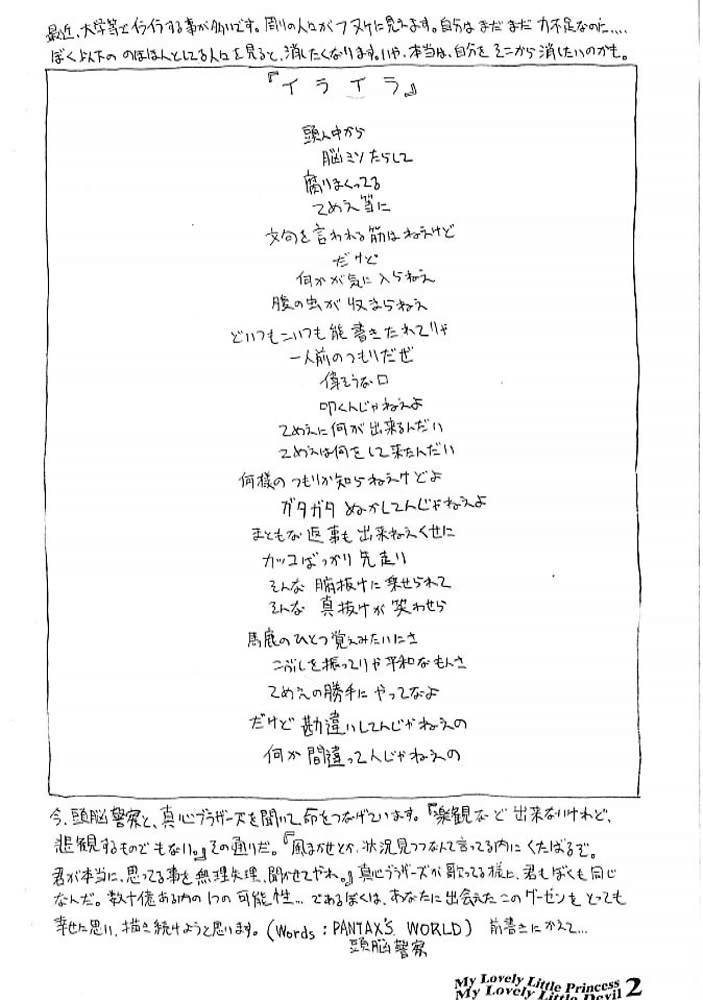 最近、大学等でイライラする事が多いです。周りの人々がフヌケに見えます。自分はまだまだ力不足なのに....
ぼく以下の のほほんとしてる人々を見ると、消したくなります。いや、本当は、自分を そこから 消したいのかも。
『イライラ』
頭ん中から
脳ミソたらして
腐りまくってる
てめえ等に
文句を言われる筋はねえけど
だけど
何かが気に入らねえ
腹の虫が収まらねえ
どいつもこいつも能書きたれてりゃ
一人前のつもりだぜ
偉そうな口
叩くんじゃねえよ
てめえに何が出来るんだい
てめえは何をして来たんだい
何様のつもりか知らねえけどよ
ガタガタぬかしてんじゃねえよ
まともな返事も出来ねえくせに
カッコばっかり先走り
そんな腑抜けに乗せられて
そんな真抜けが笑わせら
馬鹿のひとつ覚えみたいにさ
こぶしを振ってりゃ平和なもんさ
てめえの勝手にやってなよ
だけど勘違いしてんじゃねえの
何か間違ってんじゃねえの
今、頭脳警察と、真心ブラザーズを聞いて、命をつなげています。『楽観など出来ないけれど、
悲観するものでもない。』その通りだ。『風まかせとか、状況見つつなんて言ってる内にくたばるぞ。
君が本当に、思ってる事を無理矢理、聞かせてやれ。』真心ブラザーズが歌ってる様に、君もぼくも同じ
なんだ。数十億ある内の1つの可能性... であるぼくは、あなたに出会えたこのゲーゼンをとっても
幸せに思い、描き続けようと思います。(Words : PANTAX'S WORLD) 前書きにかえて...
頭脳警察
My Lovely Little Princess
My Lovely Little Devil 2